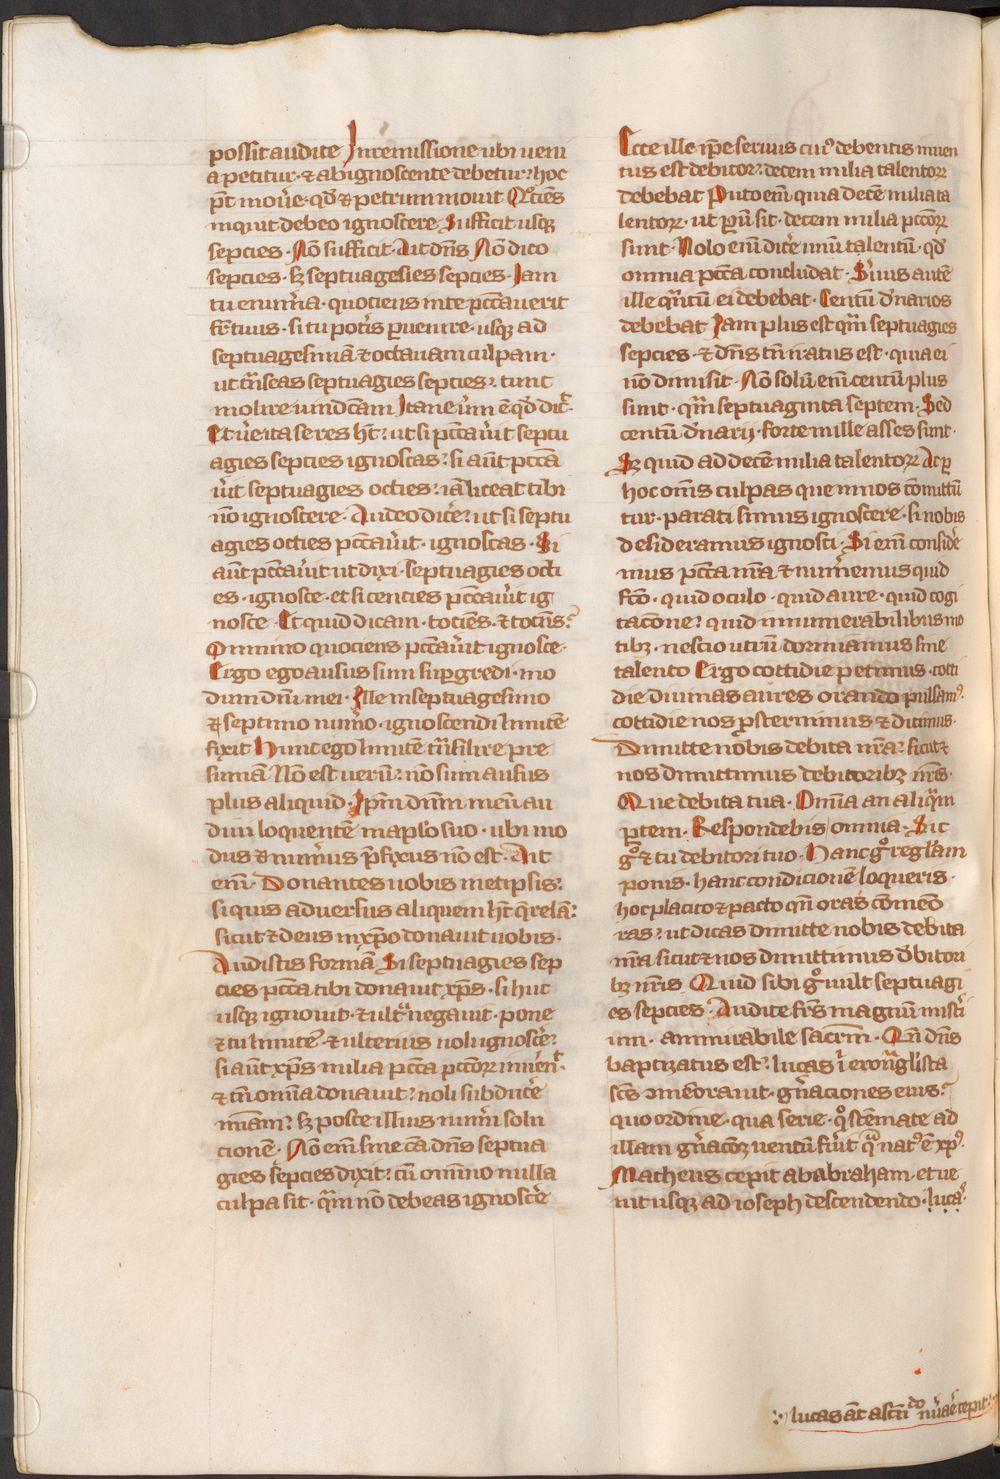 possit audire In remissione ubi ueni
a petitur · ⁊ ab ignoscente debetur · hoc
p̄t mou̾e · qd̾ ⁊ petrum mouit Q̊ciēs
inquit debeo ignoscere Sufficit usqꝫ
sepcies · Nō sufficit Ait dn̄s Nō dico
sepcies · sꝫ septuagesies sepcies · Iam
tu enum̾a · quociens in te pcc̄auerit
fr̄ tuus · si tu pot̾is ꝑuenire · usqꝫ ad
septuagesimā ⁊ octauam culpam ·
ut t̾nseas septuagies sepcies · tunc
molire uindc̄am Itane u̾m ē qd̾ dic̾ ·
Et u̾e ita se res ht̄ · ut si pcc̄au̾it septu
agies sepcies ignoscas · si aūt pcc̄a
u̾it septuagies octies · iā liceat tibi
nō ignoscere · Audeo dic̾e · ut si septu
agies octies pcc̄au̾it · ignoscas · Si
aūt pcc̄au̾it ut dixi · septuagies octi
es · ignosce · et si centies pcc̄au̾it ig
nosce Et quid dicam · tociēs · ⁊ tociēs ·
Omnino quociens pcc̄au̾it ignosce ·
Ergo ego ausus sum suꝑgredi · mo
dum dn̄i mei · Ille in septuagesimo
⁊ septimo num̾o · ignoscendi limitē
fixit Hunc ego limitē t̾nsilire pre
sumā Nō est uerū · nō sum ausus
plus aliquid · Ip̄m dn̄m meū au
diui loquentē in ap̄lo suo · ubi mo
dus ⁊ num̾us p̄fixus nō est · Ait
em̄ · Donantes uobis met ipsis ·
si quis aduersus aliquem ht̄ q̄relā ·
sicut ⁊ deus in xp̄o donauit uobis ·
Audistis formā Si septuagies sep
cies pcc̄a tibi donauit xp̄s · si huc
usqꝫ ignouit · ⁊ ult̾ negauit · pone
⁊ tu limitē · ⁊ ulterius noli ignosc̾e ·
si aūt xp̄s milia pcc̄a pcc̄oꝝ inuen̾ ·
⁊ tn̄ omnia donauit · noli subduc̾e
mīam · sꝫ posce illius num̾i solu
cionē · Nō em̄ sine cā dn̄s septua
gies sepcies dixit · cū omnino nulla
culpa sit · q̾m nō debeas ignosc̾e
Ecce ille ip̄e seruus cui᾽ debentis inuen
tus est debitor · decem milia talentoꝝ
debebat Puto em̄ quia decē milia ta
lentoꝝ · ut ꝑuū sit · decem milia pcc̄oꝝ
sunt · Nolo em̄ dic̾e unū talentū · qd̾
omnia pcc̄a concludat · S̾uus autē
ille q̾ntū ei debebat · Centū d̾narios
debebat Iam plus est q̾m septuagies
sepcies · ⁊ dn̄s tn̄ iratus est · quia ei
nō dimisit · Nō solū em̄ centū plus
sunt · q̾m septuaginta septem · Sed
centū d̾narij · forte mille asses sunt ·
Sꝫ quid ad decē milia talentoꝝ Ac ꝑ
hoc om̄s culpas que in nos cōmittū
tur · parati simus ignoscere · si nobis
desideramus ignosci · Si em̄ consid̾e
mus pcc̄a nr̄a ⁊ num̾emus quid
fcō · quid oculo · quid aure · quid cogi
tacōne · quid innumerabilibus mo
tibꝫ · nescio utrū dormiamus sine
talento Ergo cottidie petimus · cotti
die diuinas aures orando pulsam᾽ ·
cottidie nos ꝓsternimus ⁊ dicimus ·
Dimitte nobis debita nr̄a · sicut ⁊
nos dimittimus debitoribꝫ nr̄is ·
Que debita tua · Omīa an aliq̾m
ꝑtem · Respondebis omnia · Sic
g̊ ⁊ tu debitori tuo · Hanc g̊ regl̾am
ponis · hanc condicionē loqueris ·
hoc placito ⁊ pacto qn̄ oras cōmemo
ras · ut dicas dimitte nobis debita
nr̄a sicut ⁊ nos dimittimus d̾bitori
bꝫ nr̄is Quid sibi g̊ uult septuagi
es sepcies · Audite fr̄s magnū mist̾i
um · ammirabile sacr̄m · Qn̄ dn̄s
baptizatus est · lucas
sc̄s ꝯmēorauit · gn̄aciones eius ·
quo ordine · qua serie · q̊ stēmate ad
illam gn̄acōꝫ uentū fu̾it q̾ nat᾽ ē xp̄᾽ ·
Matheus cepit ab abraham · et ue
nit usqꝫ ad ioseph descendendo · luca᾽
lucas āt ascn̄do nu̾are cepit ·